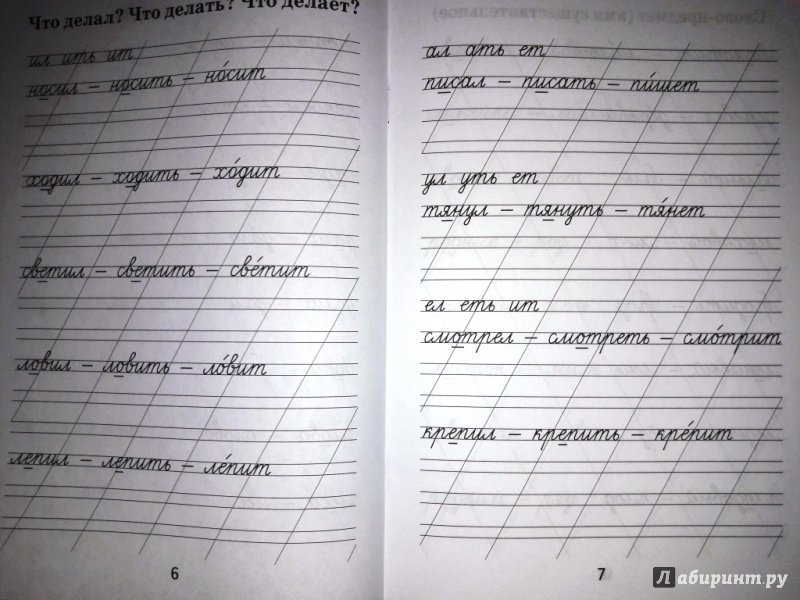 Что делал? Что делать? Что делает?
ил ить ит
носил – носить – но́сит
ходил – ходить – хо́дит
светил – светить – све́тит
ловил – ловить – ло́вит
лепил – лепить – ле́пит
6
ал ать ет
писал – писать – пи́шет
ул уть ет
тянул – тянуть – тя́нет
ел еть ит
смотрел – смотреть – смо́трит
крепил – крепить – кре́пит
7
Лабиринт.ру